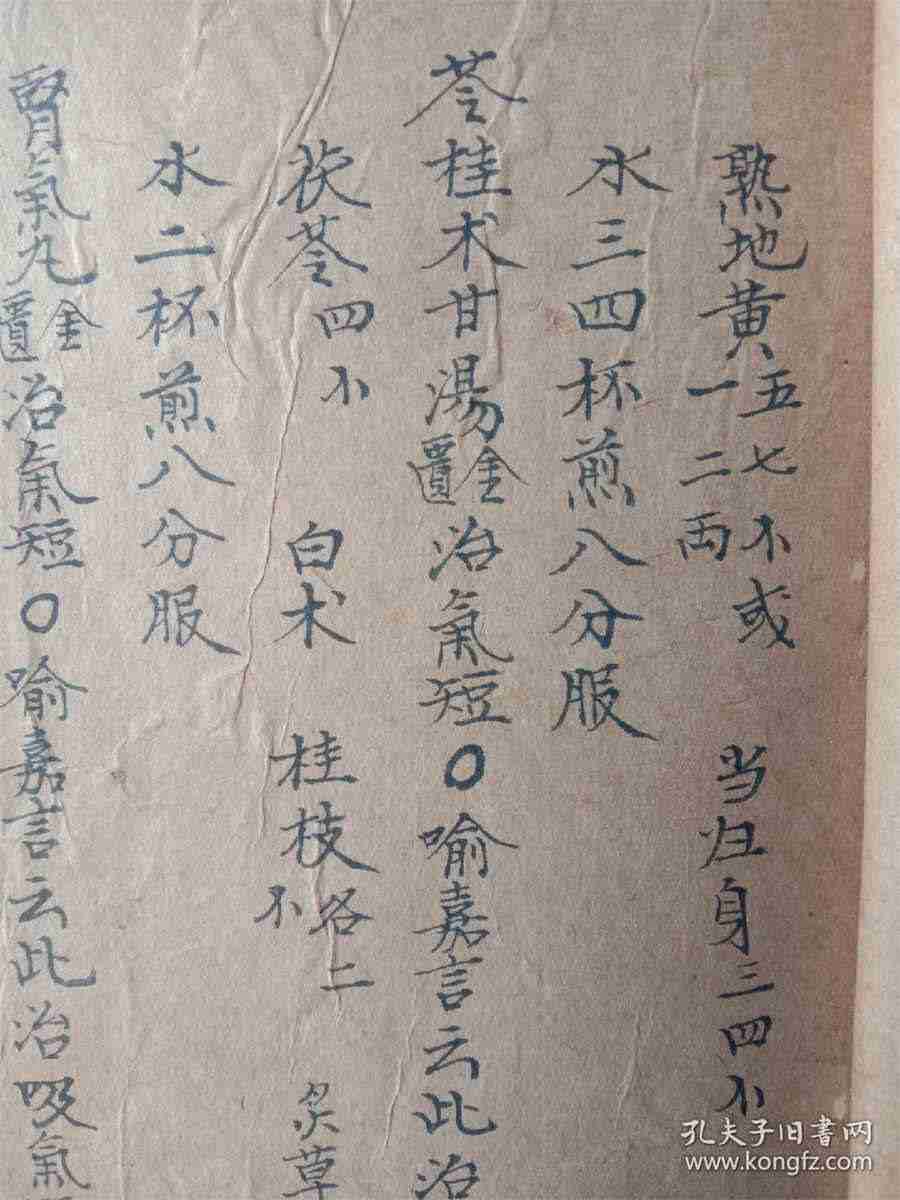 熟地黄五七不或一二両 当归身三四不
水三四杯煎八分服
苓桂术甘湯金匱治氣短〇喻嘉言云此治
茯苓四不 白术 桂枝各二不 炙草
水二杯煎八分服
腎氣丸金匱治氣短〇喻嘉言云此治吸氣
孔夫子旧書网
www.kongfz.com